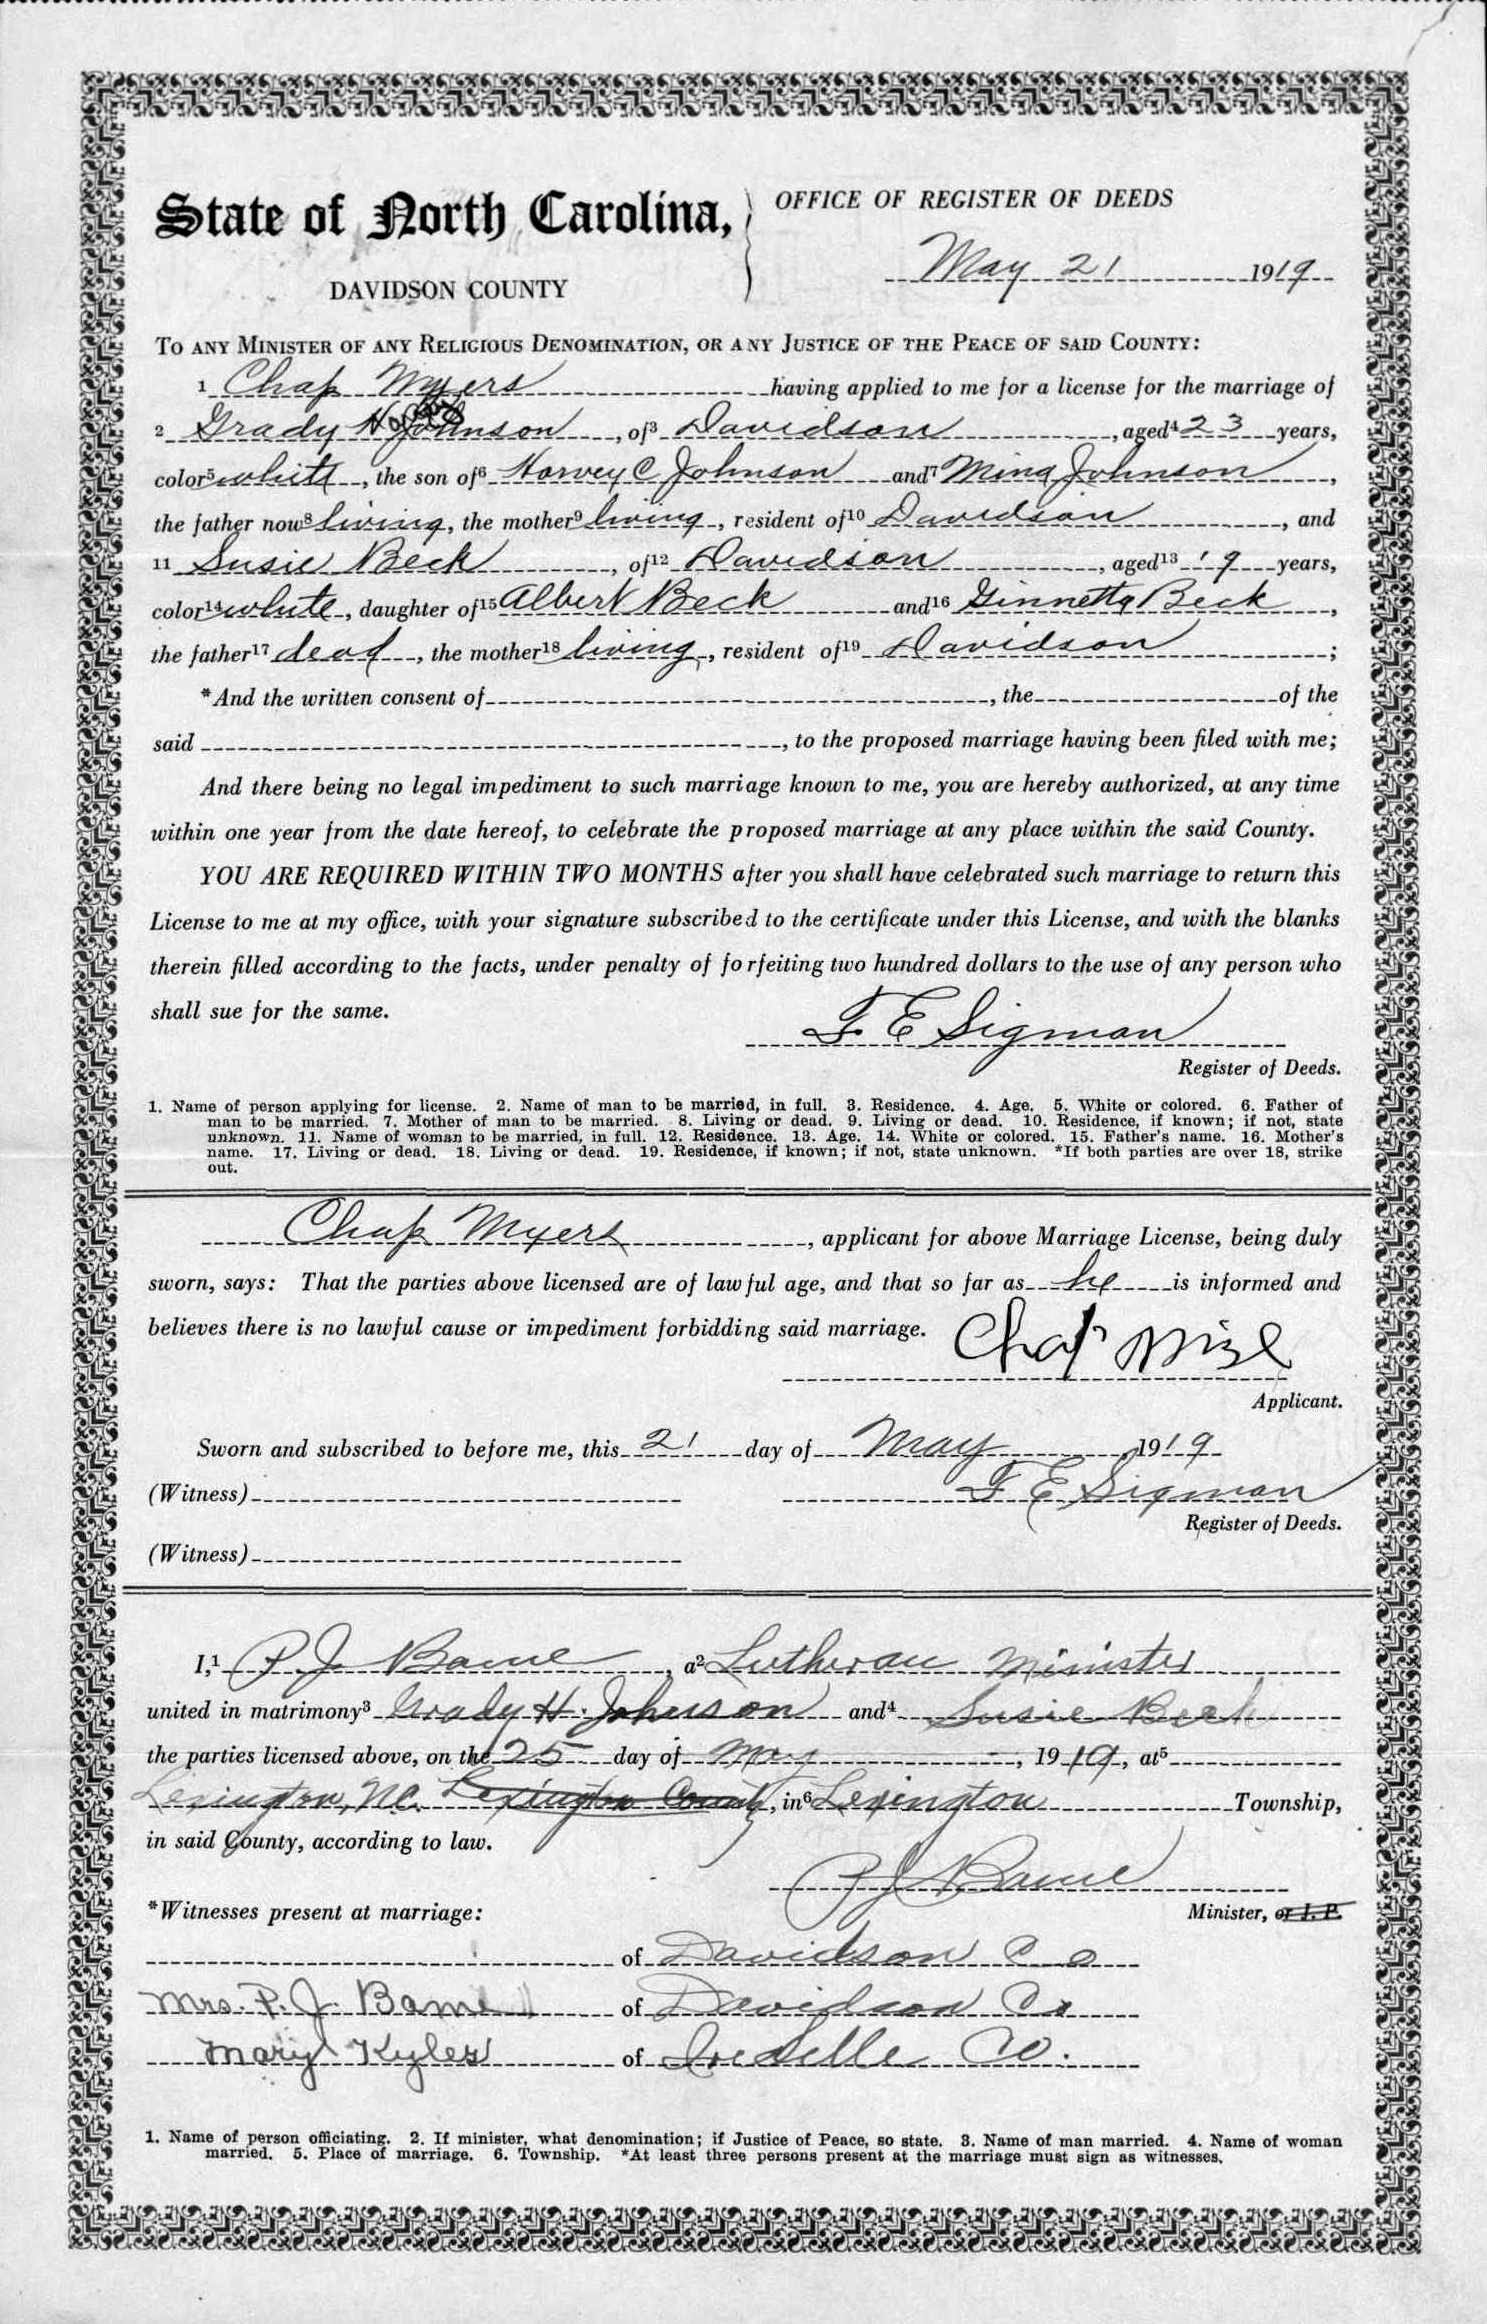 State of North Carolina,
DAVIDSON COUNTY
OFFICE OF REGISTER OF DEEDS
May 21 1919
TO ANY MINISTER OF ANY RELIGIOUS DENOMINATION, OR ANY JUSTICE OF THE PEACE OF SAID COUNTY:
1 Chap Myers having applied to me for a license for the marriage of
2 Grady H Johnson, of3 Davidson, aged4 23 years,
color5 white, the son of6 Harvey C Johnson and7 Mina Johnson,
the father now8 living, the mother9 living, resident of10 Davidson, and
11 Susie Beck, of12 Davidson, aged13 19 years,
color14 white, daughter of15 Albert Beck and16 Ginnetta Beck,
the father17 dead, the mother18 living, resident of19 Davidson;
*And the written consent of, the of the
said, to the proposed marriage having been filed with me;
And there being no legal impediment to such marriage known to me, you are hereby authorized, at any time
within one year from the date hereof, to celebrate the proposed marriage at any place within the said County.
YOU ARE REQUIRED WITHIN TWO MONTHS after you shall have celebrated such marriage to return this
License to me at my office, with your signature subscribed to the certificate under this License, and with the blanks
therein filled according to the facts, under penalty of forfeiting two hundred dollars to the use of any person who
shall sue for the same.
F E Sigman
Register of Deeds.
1. Name of person applying for license. 2. Name of man to be married, in full. 3. Residence. 4. Age. 5. White or colored. 6. Father of
man to be married. 7. Mother of man to be married. 8. Living or dead. 9. Living or dead. 10. Residence, if known; if not, state
unknown. 11. Name of woman to be married, in full. 12. Residence. 13. Age. 14. White or colored. 15. Father's name. 16. Mother's
name. 17. Living or dead. 18. Living or dead. 19. Residence, if known; if not, state unknown. *If both parties are over 18, strike
out.
Chap Myers, applicant for above Marriage License, being duly
sworn, says: That the parties above licensed are of lawful age, and that so far as he is informed and
believes there is no lawful cause or impediment forbidding said marriage.
Chap
Applicant.
Sworn and subscribed to before me, this 21 day of May 1919
(Witness)
F E Sigman
Register of Deeds.
(Witness)
I,1 P. J. Bame, a2 Lutheran Minister
united in matrimony3 Grady H. Johnson and4 Susie Beck
the parties licensed above, on the 25 day of May, 1919, at5
Lexington, N.C. Lexington County, in6 Lexington Township,
in said County, according to law.
P J Bame
*Witnesses present at marriage:
Minister, or J. P.
of Davidson Co
Mrs. P. J. Bame of Davidson Co
Mary Kyles of Iredelle Co.
1. Name of person officiating. 2. If minister, what denomination; if Justice of Peace, so state. 3. Name of man married. 4. Name of woman
married. 5. Place of marriage. 6. Township. *At least three persons present at the marriage must sign as witnesses.